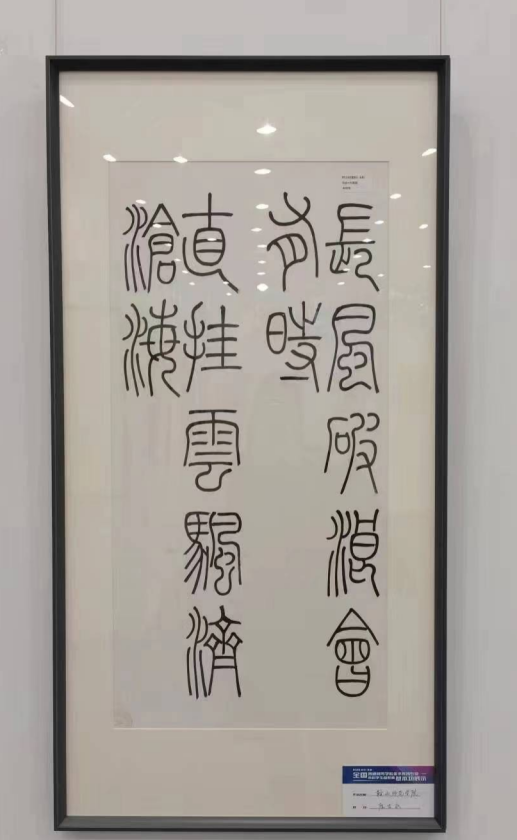 長風破浪會
有時
直挂雲颿濟
滄海
全国